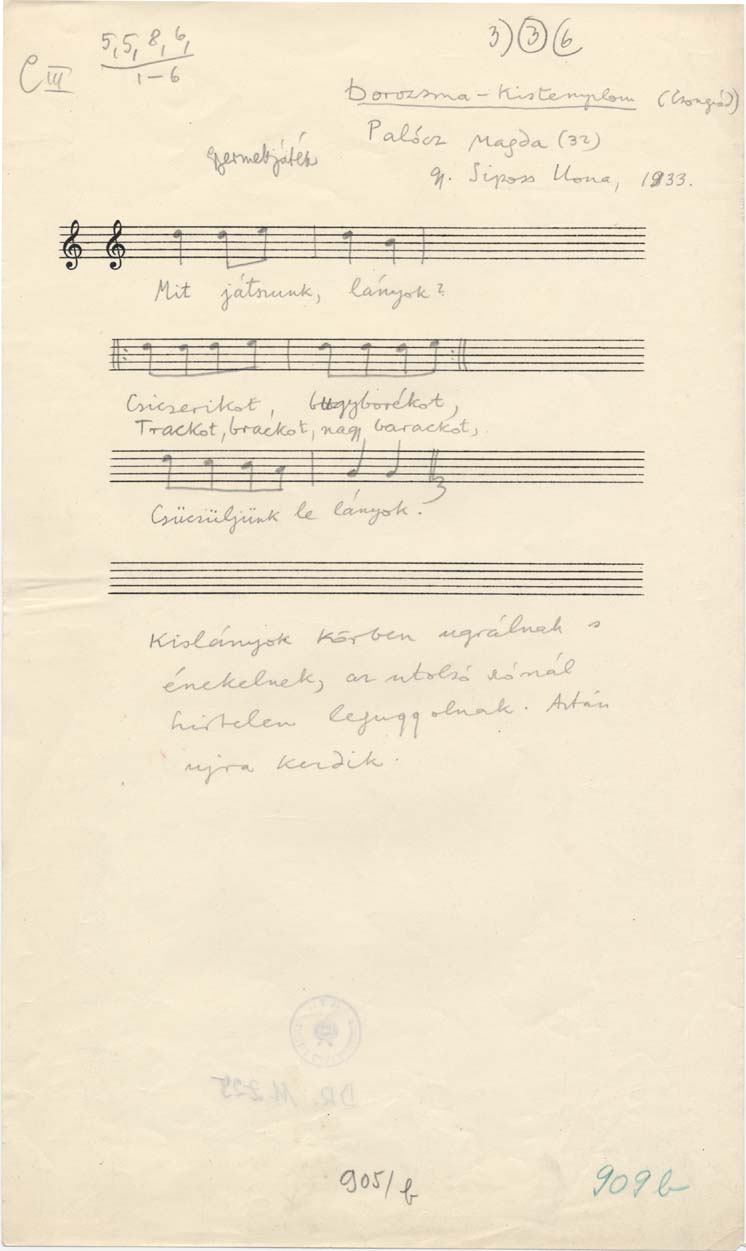 C III
5, 5, 8, 6,
1–6
3) 3 6
Dorozsma – Kistemplom (Csongrád)
Palócz Magda (32)
gyermekjáték
gy. Siposs Ilona, 1933.
Mit játszunk, lányok?
Csicserikot, bugyborékot,
Trackot, brackot, nagy barackot,
Csücsüljünk le lányok.
3
Kislányok körben ugrálnak s
énekelnek, az utolsó sónál
hirtelen leguggolnak. Aztán
ujra kezdik.
DR. M 225
905/b
909 b